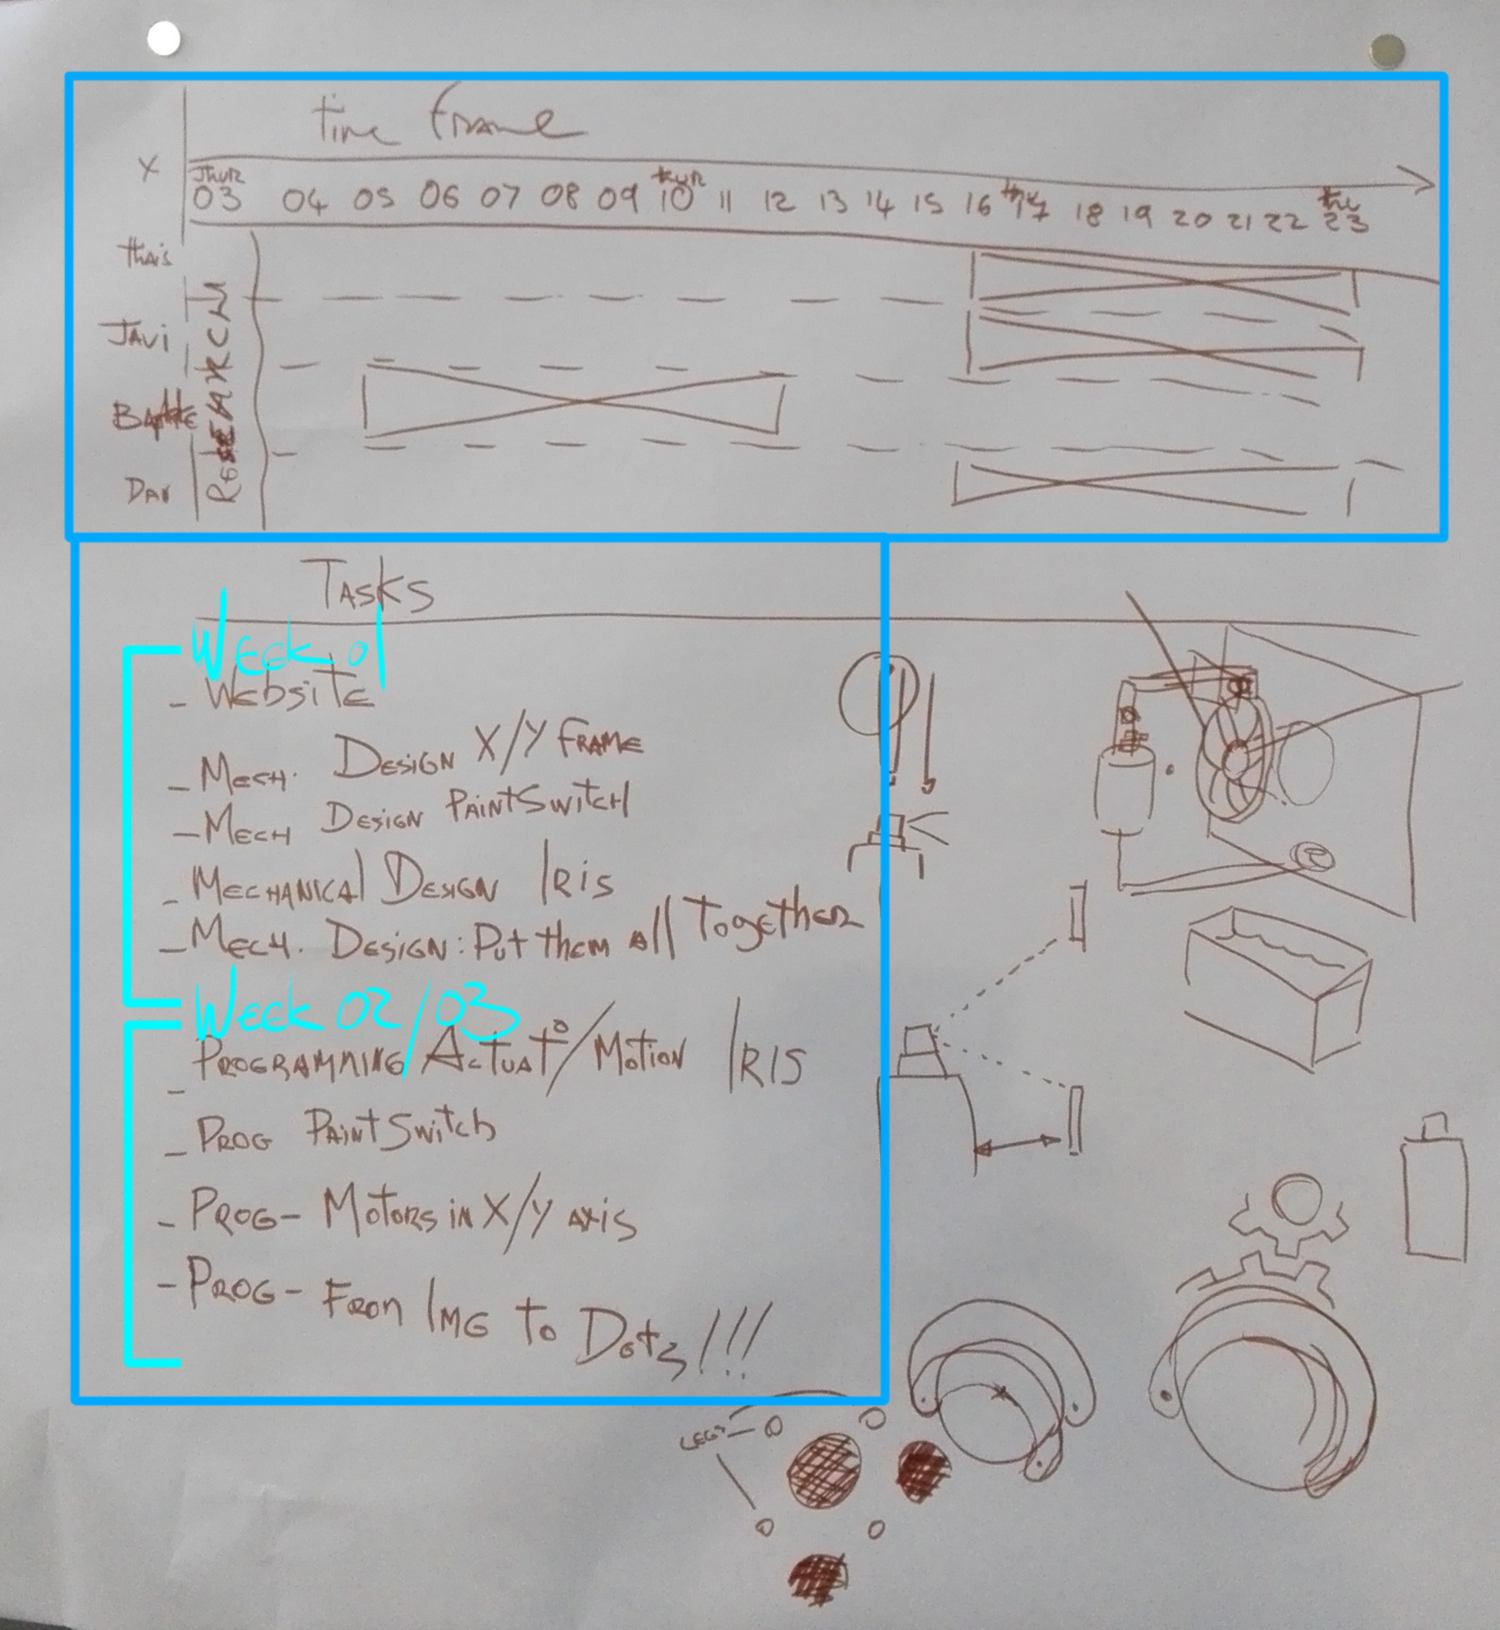 time frame
X
Thur Thur Thu Thu
03 04 05 06 07 08 09 10 11 12 13 14 15 16 17 18 19 20 21 22 23
Thais
Javi
Dav
RESEARCH
Tasks
Week 01
- Website
- Mech. Design X/Y Frame
- Mech Design PaintSwitch
- Mechanical Design Iris
- Mech. Design: Put them all Together
Week 02/03
- Programming/Actuatº/Motion IRIS
- Prog PaintSwitch
- Prog- Motors in X/Y axis
- Prog- From Img to Dots!!!
LEGS